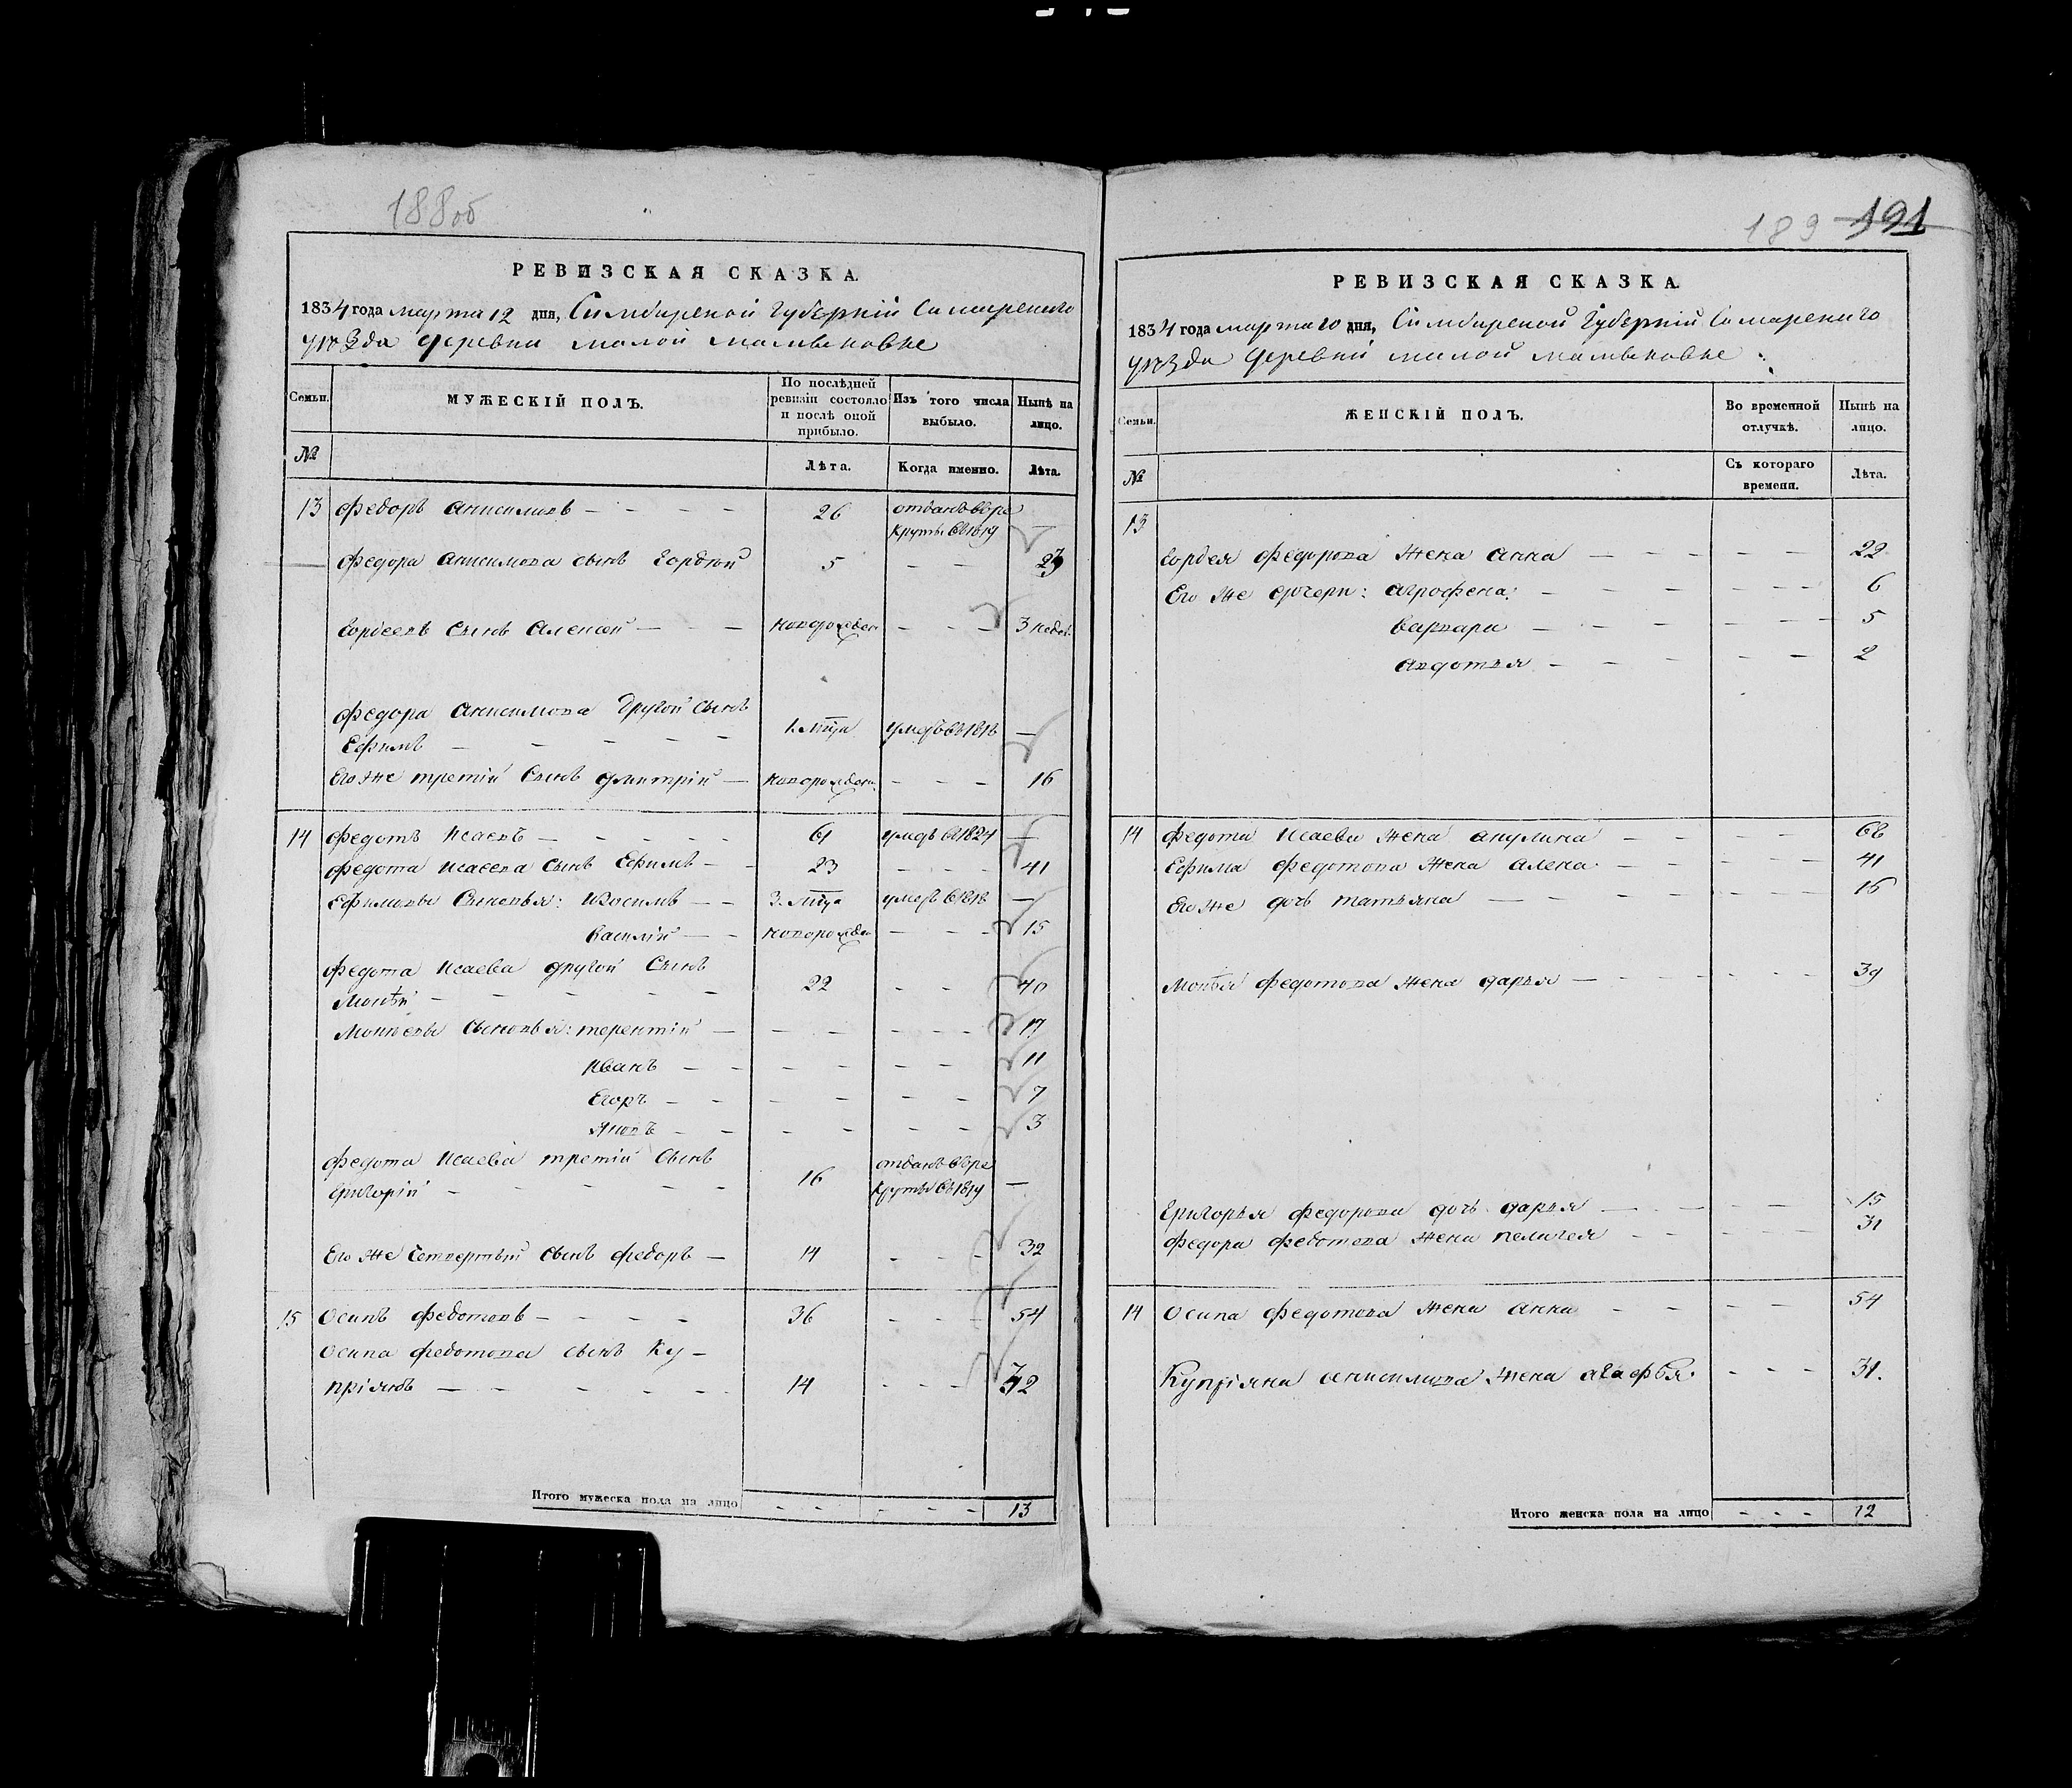 188об
РЕВИЗСКАЯ СКАЗКА.
1834 года марта 12 дня, Симбирской Губерніи Самарскаго
уѣзда деревни малой малыковке
Семьи.
МУЖЕСКІЙ ПОЛЪ.
По послѣдней ревизіи состояло и послѣ оной прибыло.
Изъ того числа выбыло.
Нынѣ на лицо.
№
Лѣта.
Когда именно.
Лѣта.
13 Федоръ Анисимовъ — 26 отданъ въре
круты въ 1819 —
Федора Анисимова сынъ Гордѣй 5 — —
Гордеевъ сынъ Алексей — новорожден — 3 недел.
Федора Анисимова другой сынъ
Ефимъ — 1. мца умеръ въ 1818 —
Его же третій сынъ дмитрій — новорожден. — 16
14 Федотъ Исаевъ — 61 умеръ в 1824 —
Федота Исаева сынъ Ефимъ — 23 — 41
Ефимовы сыновья: — 3. мца умеръ в 1818 —
Василій — новорожден — 15
Федота Исаева другой сынъ
Мокѣй — 22 — 40
Мокѣевы сыновья: терентій — 17
Иванъ — 11
Егоръ — 7
3
Федота Исаева третій сынъ
Григорій — 16 отданъ въре
круты въ 1819 —
Его же четвертый сынъ Федоръ — 14 — 32
15 Осипъ Федотовъ — 36 — 54
Осипа Федотова сынъ Ку-
пріянъ — 14 — 32
Итого мужеска пола на лицо — 13
189 191
РЕВИЗСКАЯ СКАЗКА.
1834 года марта 10 дня, Симбирской Губерніи Самарскаго
уѣзда деревни малой малыковке
Семьи.
ЖЕНСКІЙ ПОЛЪ.
Во временной отлучкѣ.
Нынѣ на лицо.
№
Съ котораго времени.
Лѣта.
13
Гордея Федорова жена Анна — 22
Его же дочери: Агрофена: — 6
Варвара — 5
Авдотья — 2
14 Федота Исаева жена Акулина — 68
Ефима Федотова жена Алена — 41
Его же дочь татьяна — 16
Мокѣя Федотова жена дарья — 39
Григорья Федорова дочь дарья — 15
Федора Федотова жена Пелагея — 31
14 Осипа Федотова жена Анна — 54
Купріяна Анисимова жена Агафья. — 31.
Итого женска пола на лицо — 12